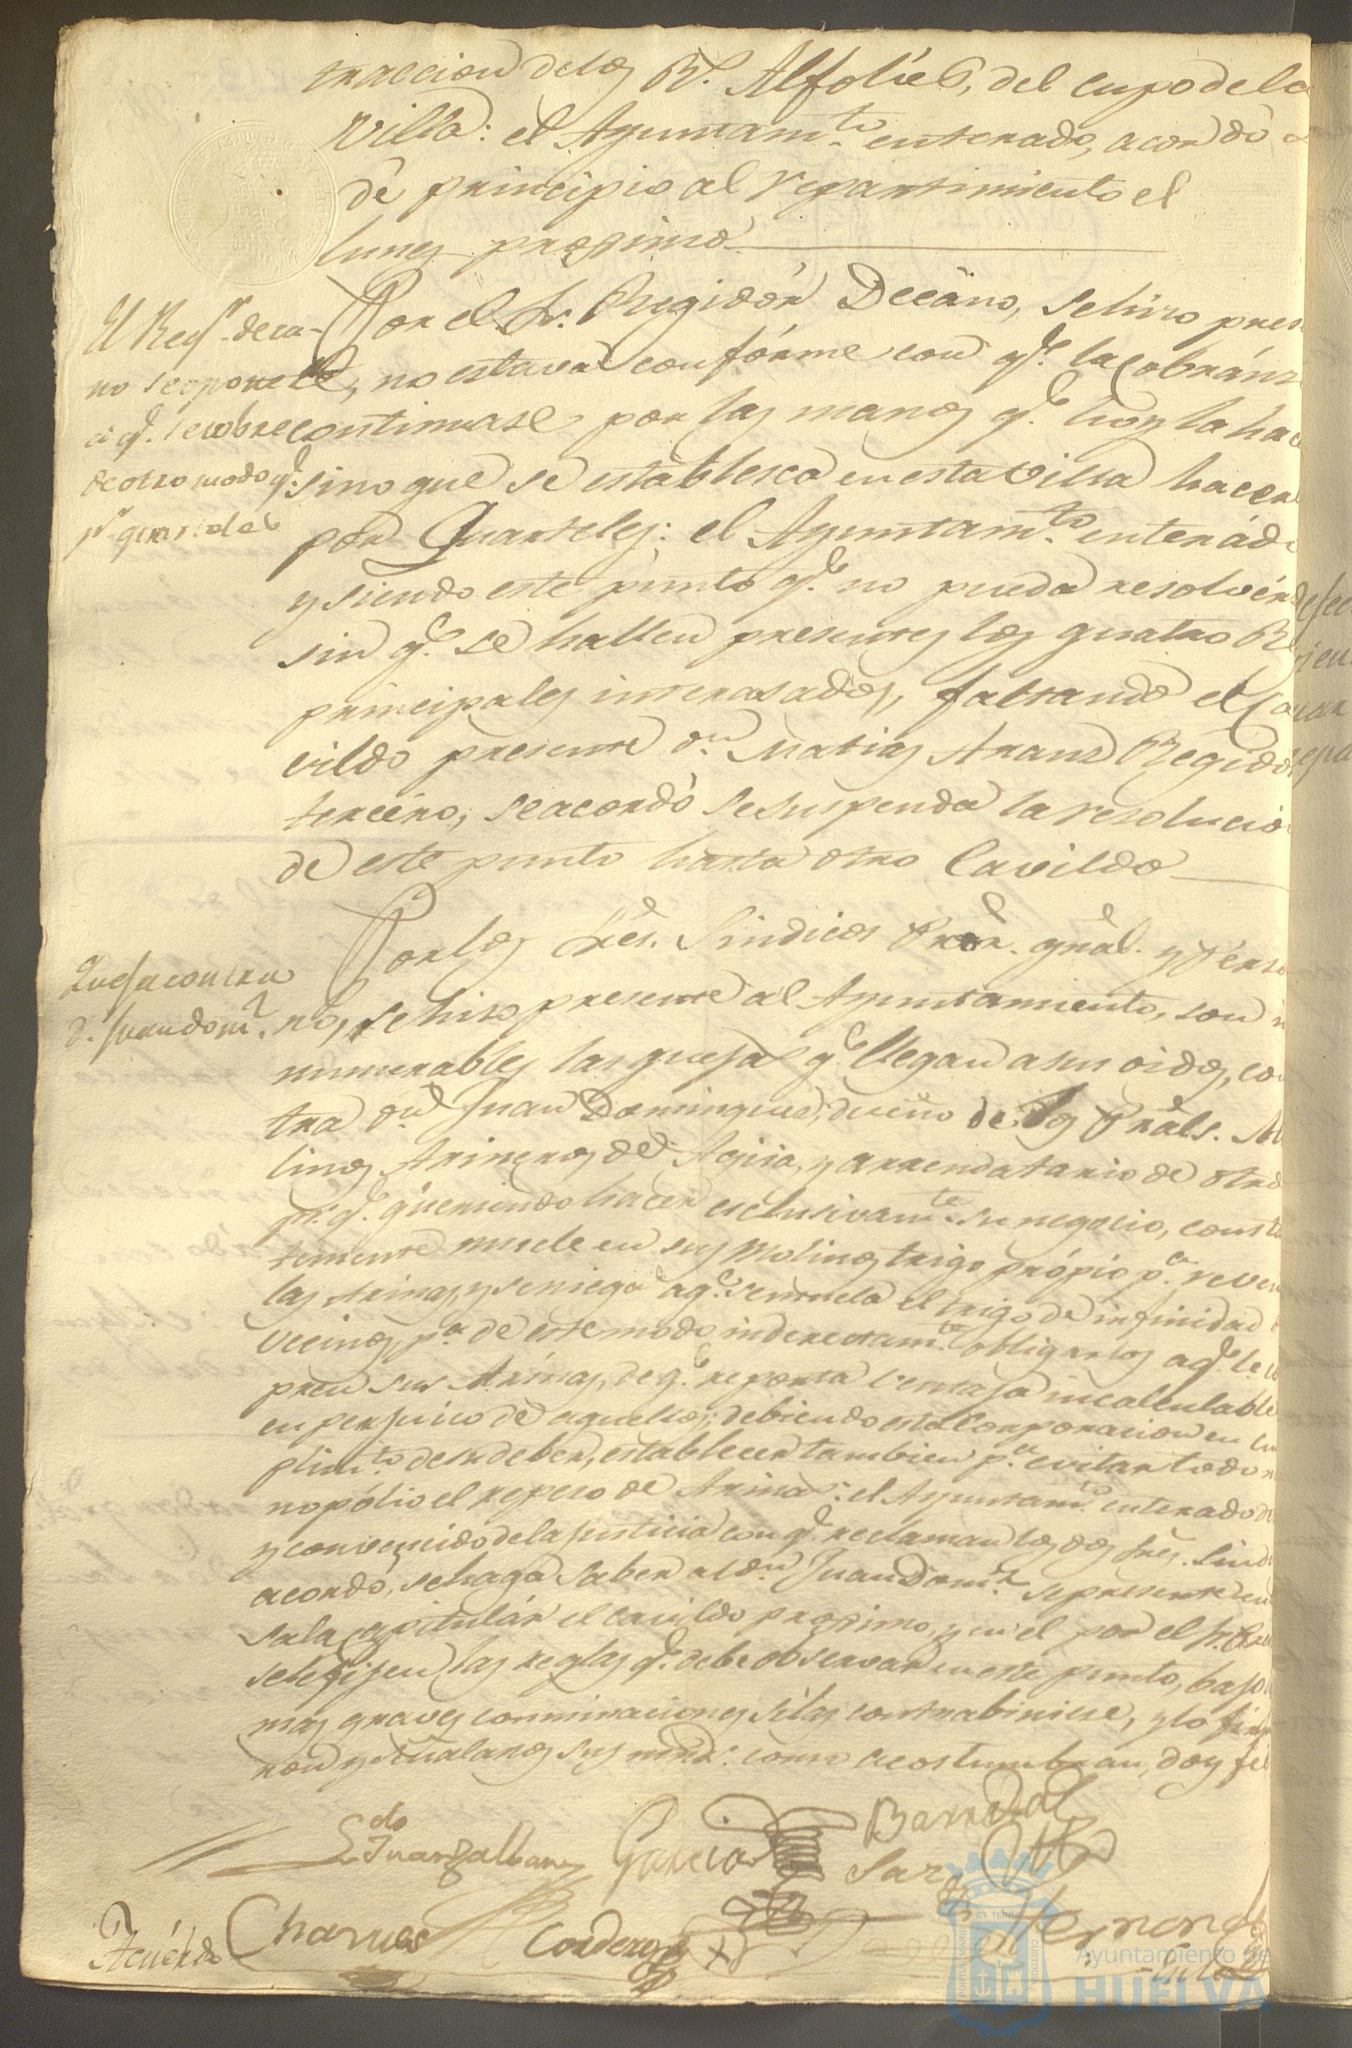 traccion delos Rs. Alfolíes, del cupo de la
Villa: el Ayuntamto. enterado, acordó
dé principio al repartimiento el
lunes proximo
El Regr. deca-
no se opone
a qe. se cobre
de otro modo qe.
pr. quarteles
Por el Sr. Regidór Decano, se hizo pres
no estava confórme con qe. la cobránz
continuase por las manos qe. hoy la hac
sino que se establesca en esta Villa hacer
por Quarteles: el Ayuntamto. enterád
y siendo este punto qe. no pueda resolvér
sin qe. se hallen presentes los quatro R
principales interasados, faltando el Ca
vildo presente dn. Matias Aranz Regidor
tercero, se acordó se suspenda la resolució
de este punto hasta otro Cavildo
Queja contra
d. Juan Domz.
Por los Sres. Sindicos Pror. gral. y Perso
no, se hizo presente al Ayuntamiento, son in
numerables las quejas qe. llegan a sus oidos, con
tra dn. Juan Dominguez, dueño de los Prales. Mo
linos Arineros del Agua, y arrendatario de otro
pr. qe. queriendo hacer esclusivamte. su negocio, const
temente muele en sus Molinos trigo própio pa. reven
las Arinas, y se niega a qe. se muela el trigo de infinidad
Vecinos, pa. de este modo inderectamte. obligarlos a qe. le co
pren sus Arinas, de qe. reporta ventaja incalculable
en perjuicio de aquellos; debiendo esta Corporacion en cum
plimto. de su deber, establecer tambien pa. evitar todo m
nopólio el repeso de Arina: el Ayuntamto. enterado de
y convencido de la justicia con qe. reclaman los dos Sres. Sindi
acordó, se haga saber al dn. Juan Domz. se presente en
sala capitulár el cavildo proximo, y en el por el Sr.
se le fijen las reglas qe. debe observar en este punto, bajo
mas graves conminaciones si las contrabiniese, y lo firm
ron y señalaron sus mrds. como acostumbran, doy fé
Ldo. Juan
Garcia
Barreda
Saez
Charnes
Cordero
Hernandez
Acuérdo
Ayuntamiento de
HUELVA